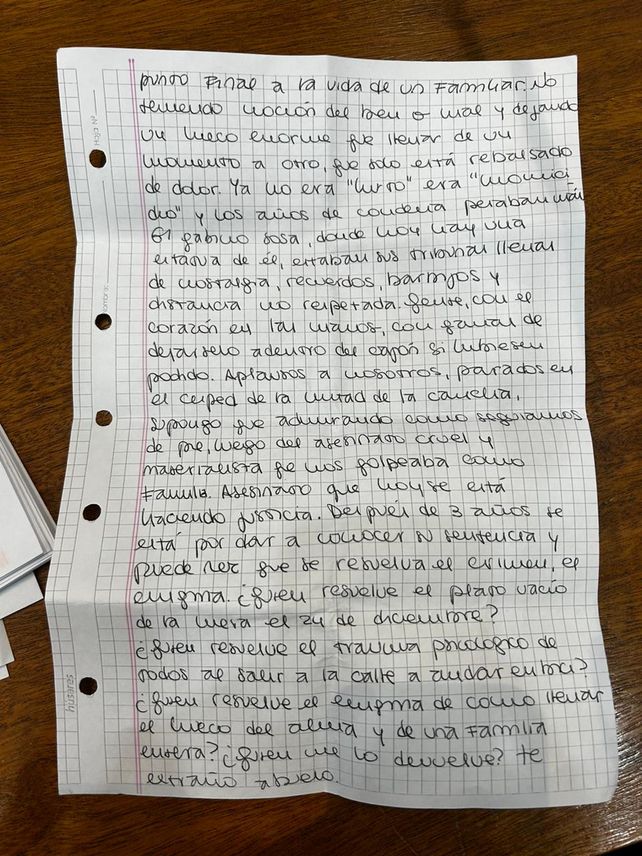 punto Final a la vida de un Familiar. No
teniendo noción del bien o mal y dejando
un hueco enorme que llenar de un
momento a otro, que solo está rebalsado
de dolor. Ya no era "hurto" era "homici
dio" y los años de condena pesaban más
El gabino sosa, donde hoy hay una
estatua de él, estaban sus tribunas llenas
de nostalgia, recuerdos, barbijos y
distancia no respetada. Gente, con el
corazón en las manos, con ganas de
dejarselo adentro del cajón si hubiesen
podido. Aplausos a nosotros, parados en
el cesped de la mitad de la cancha,
supongo que admirando como seguiamos
de pie, luego del asesinato cruel y
materialista que nos golpeaba como
Familia. Asesinato que hoy se está
haciendo justicia. Después de 3 años se
está por dar a conocer su sentencia y
puede ser que se resuelva el crimen, el
enigma. ¿Quien resuelve el plato vacío
de la mesa el 24 de diciembre?
¿Quien resuelve el trauma psicologico de
todos al salir a la calle a andar en bici?
¿Quien resuelve el enigma de como llenar
el hueco del alma y de una Familia
entera? ¿Quien me lo devuelve? te
extraño abuelo.
HOJA Nº
nombre: